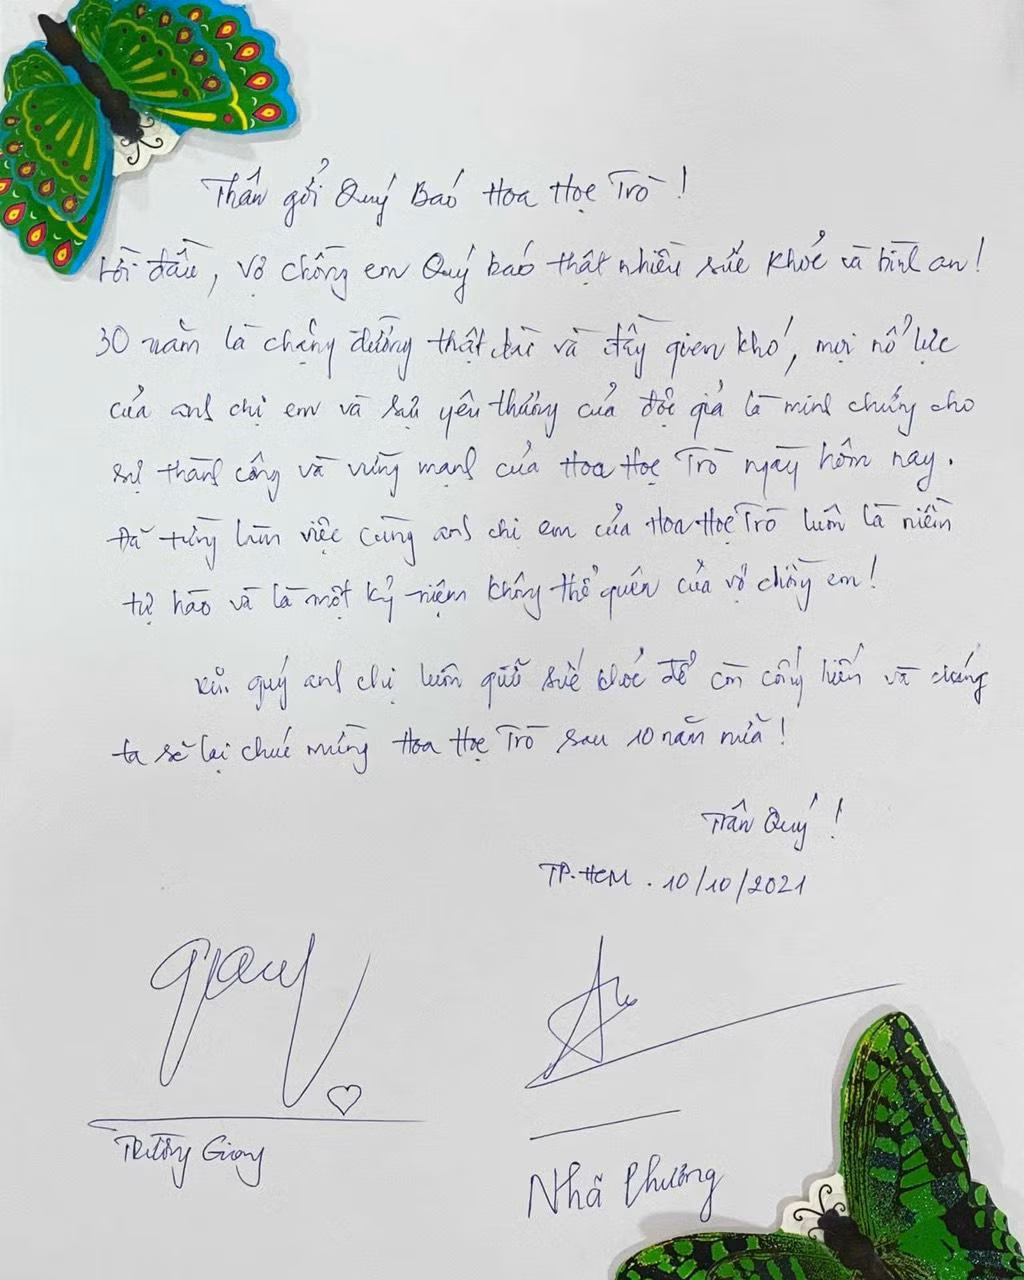 Thân gởi Quý Báo Hoa Học Trò !
Lời đầu, vợ chồng em Quý báo thật nhiều sức khoẻ và bình an !
30 năm là chặng đường thật dài và đầy gian khó, mọi nổ lực
của anh chị em và sự yêu thương của độc giả là minh chứng cho
sự thành công và vững mạnh của Hoa Học Trò ngày hôm nay.
Đã từng làm việc cùng anh chị em của Hoa Học Trò luôn là niềm
tự hào và là một kỷ niệm không thể quên của vợ chồng em !
quý anh chị luôn giữ sức khoẻ để còn cống hiến và chúng
ta sẽ lại chúc mừng Hoa Học Trò sau 10 năm nữa !
Trân Quý !
TP.HCM . 10/10/2021
Trường Giang
Nhã Phương